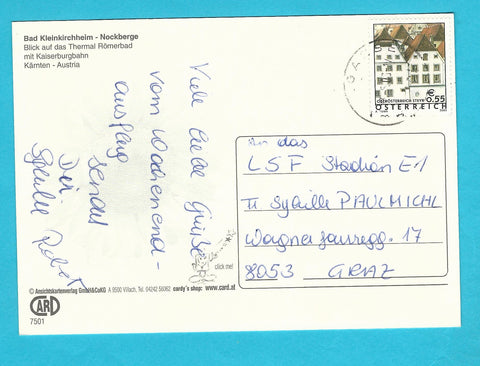 Bad Kleinkirchheim - Nockberge
Blick auf das Thermal Römerbad
mit Kaiserburgbahn
Kärnten - Austria
Viele liebe Grüße
vom Wochenend-
ausflug
sendet
Dir
€
0.55
OBERÖSTERREICH STEYR
ÖSTERREICH
An das
LSF Station E1
Sybille PAULMICHL
Wagner Jauregg. 17
8053 GRAZ
click me!
© Ansichtskartenverlag GmbH&CoKG A 9500 Villach, Tel. 04242 56062 cardy's shop: www.card.at
CARD
7501